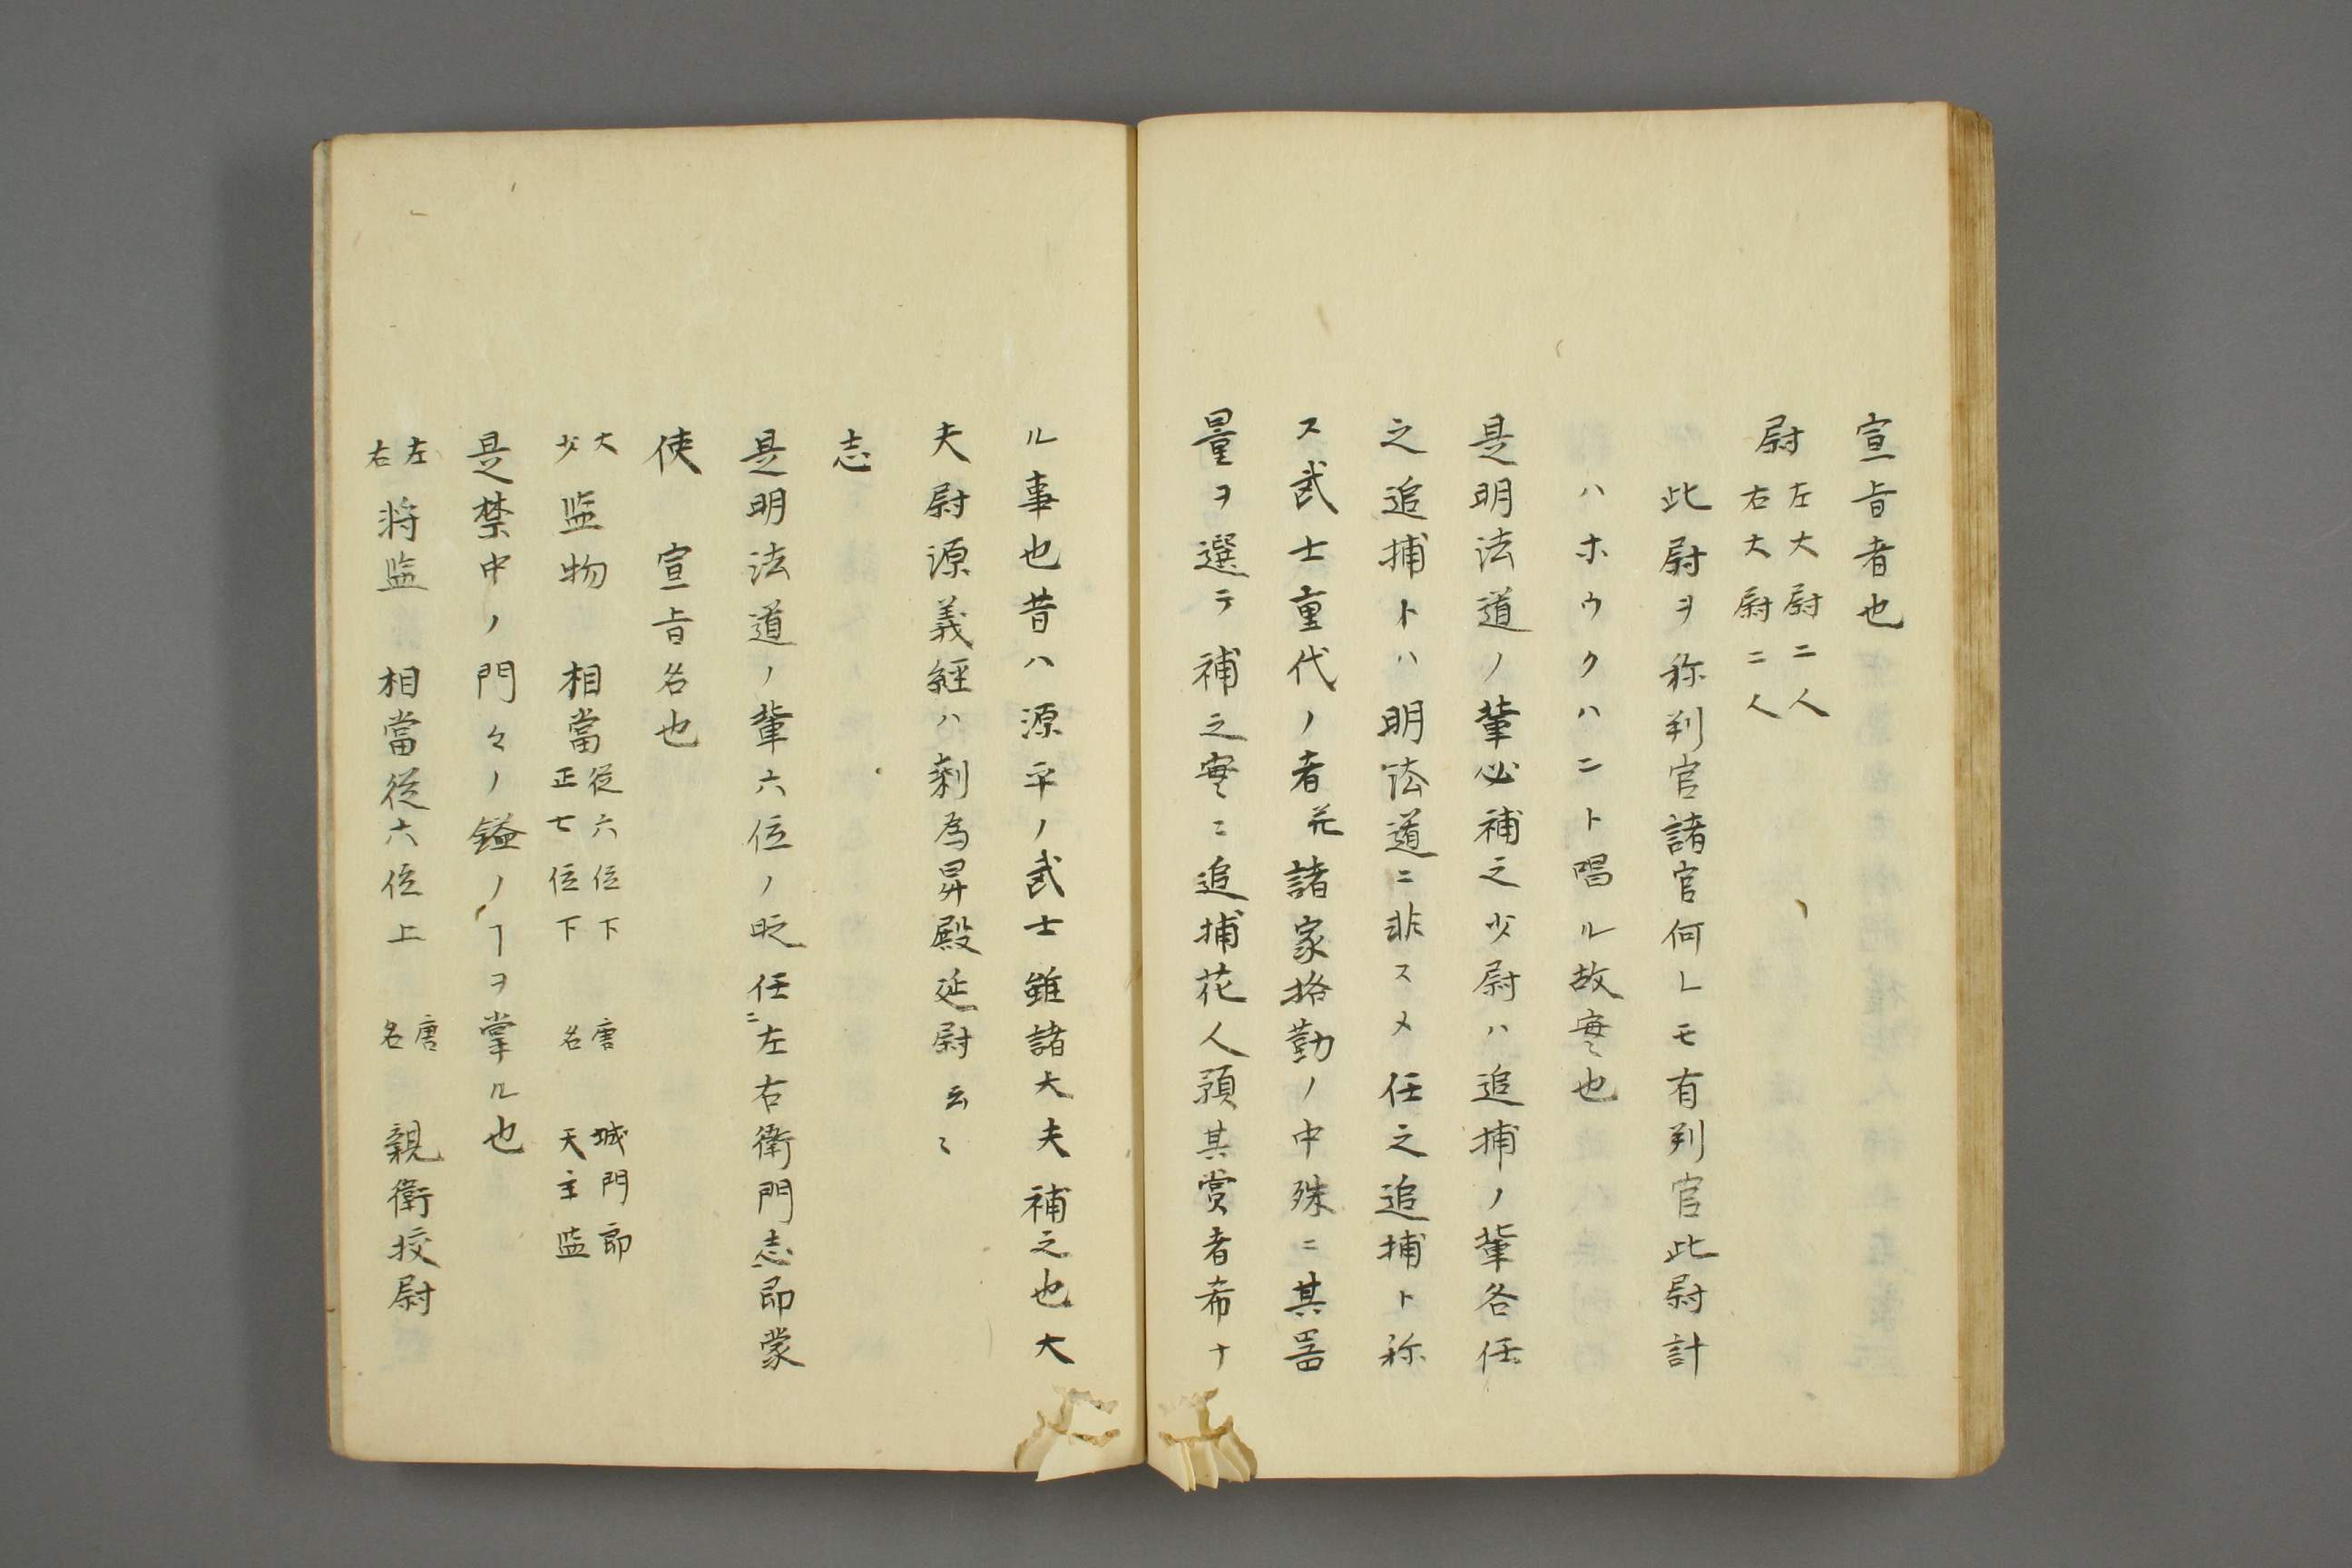 宣旨者也
尉 左大尉二人
右大尉二人
此尉ヲ称判官諸官何レモ有判官此尉計
ハホウクハニト唱ル故実也
是明法道ノ輩必補之少尉ハ追捕ノ輩各任
之追捕トハ明法道ニ非スメ任之追捕ト称
ス武士重代ノ者并諸家挌勤ノ中殊ニ其器
量ヲ選テ補之実ニ追捕花人預其賞者希ナ
ル事也昔ハ源平ノ武士雖諸大夫補之也大
夫尉源義経ハ剰為昇殿延尉云々
志
是明法道ノ輩六位ノ時任ニ左右衛門志即蒙
使 宣旨名也
大少監物 相當 従六位下 正七位下 唐名 城門郎 天主監
是禁中ノ門々ノ鎰ノヿヲ掌ル也
左右将監 相當従六位上 唐名 親衛校尉